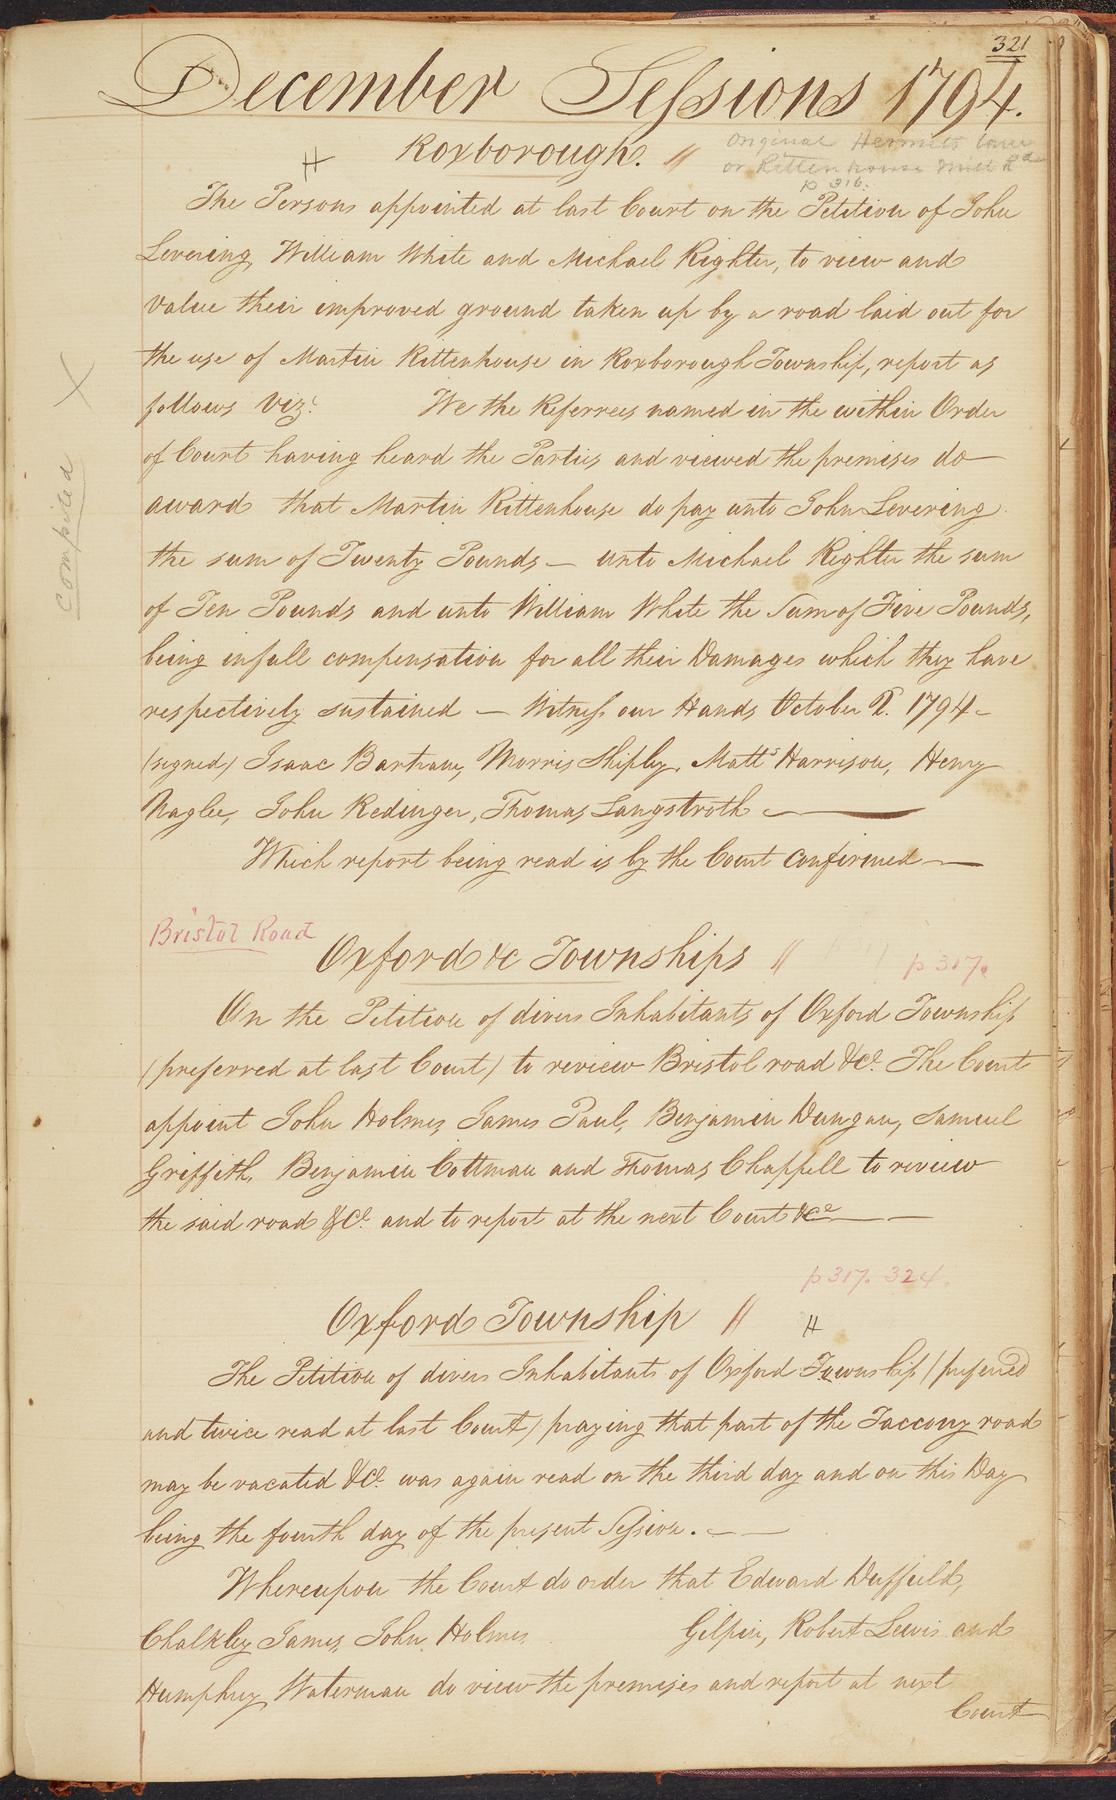 321
December Sessions 1794.
Roxborough. //
Original Hermits lane
or Rittenhouse Mill Rd
p 316.
The Persons appointed at last Court on the Petition of John
Levering, William White and Michael Righter, to view and
value their improved ground taken up by a road laid out for
the use of Martin Rittenhouse in Roxborough Township, report as
follows Vizt. We the Referrees named in the within Order
of Court having heard the Parties and viewed the premises do
award that Martin Rittenhouse do pay unto John Levering
the sum of Twenty Pounds — unto Michael Righter the sum
of Ten Pounds and unto William White the Sum of Five Pounds,
being in full compensation for all their Damages which they have
respectively sustained — Witness our Hands October 2. 1794 –
(signed) Isaac Bartram, Morris Shipley, Matts Harrison, Henry
Naglee, John Redinger, Thomas Langstroth —
Which report being read is by the Court confirmed —
Computed X
Bristol Road
Oxford &c Townships // p 317.
On the Petition of divers Inhabitants of Oxford Township
(preferred at last Court) to review Bristol road &Ca. The Court
appoint John Holmes, James Paul, Benjamin Dungan, Samuel
Griffith, Benjamin Cottman and Thomas Chappell to review
the said road &Ca. and to report at the next Court &ca —
p. 317. 324.
Oxford Township //
The Petition of divers Inhabitants of Oxford Township (preferred
and twice read at last Court) praying that part of the Taccony road
may be vacated &Ca. was again read on the third day and on this Day
being the fourth day of the present Session. — —
Whereupon the Court do order that Edward Duffield,
Chalkley James, John Holmes, Gilpin, Robert Lewis and
Humphrey Waterman do view the premises and report at next
Court